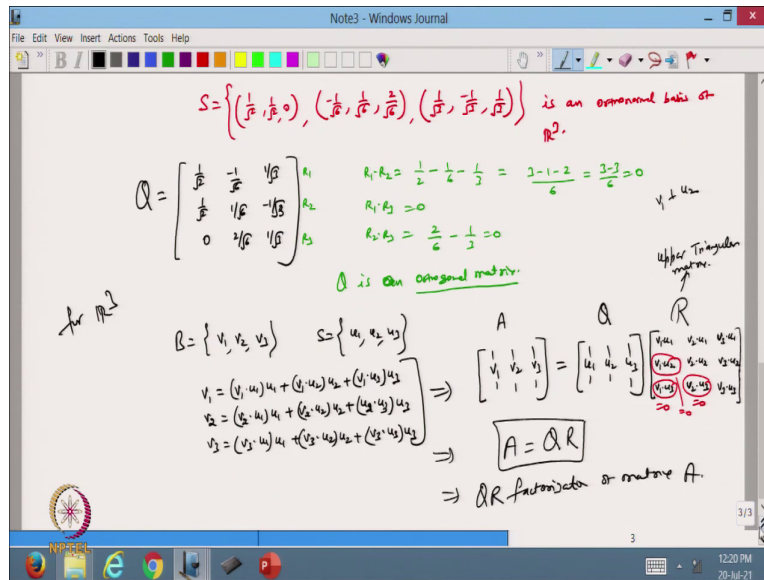 Note3 - Windows Journal
File Edit View Insert Actions Tools Help
S = {(1/√2, 1/√2, 0), (-1/√6, 1/√6, 2/√6), (1/√3, -1/√3, 1/√3)} is an orthonormal basis of
R³.
Q = [1/√2 -1/√6 1/√3] R₁ R₁·R₂ = 1/2 - 1/6 - 1/3 = (3-1-2)/6 = (3-3)/6 = 0
[1/√2 1/√6 -1/√3] R₂ R₁·R₃ = 0
[0 2/√6 1/√3] R₃ R₂·R₃ = 2/6 - 1/3 = 0
v₁ ⊥ u₂
Q is an orthogonal matrix.
Upper Triangular
matrix.
for R³
B = {v₁, v₂, v₃} S = {u₁, u₂, u₃}
v₁ = (v₁·u₁)u₁ + (v₁·u₂)u₂ + (v₁·u₃)u₃
v₂ = (v₂·u₁)u₁ + (v₂·u₂)u₂ + (v₂·u₃)u₃
v₃ = (v₃·u₁)u₁ + (v₃·u₂)u₂ + (v₃·u₃)u₃
A Q R
⇒ [v₁ v₂ v₃] = [u₁ u₂ u₃] [v₁·u₁ v₂·u₁ v₃·u₁]
[v₁·u₂ v₂·u₂ v₃·u₂]
[v₁·u₃ v₂·u₃ v₃·u₃]
=0 =0 =0
⇒ A = QR
⇒ QR factorization of matrix A.
NPTEL
3/3
3
12:20 PM
20-Jul-21